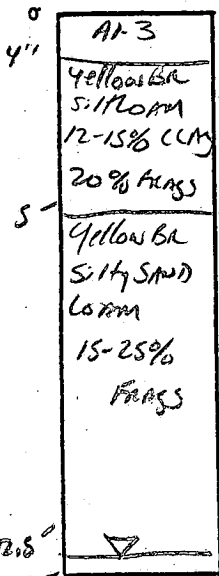 0
A1-3
4"
Yellow BR
Silt Loam
12-15% Clay
20% Frags
5'
Yellow BR
Silty SAND
Loam
15-25%
Frags